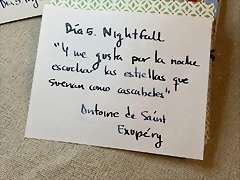 Día 5. Nightfall
"Y me gusta por la noche
escuchar las estrellas que
suenan como cascabeles"
Antoine de Saint
Exupéry